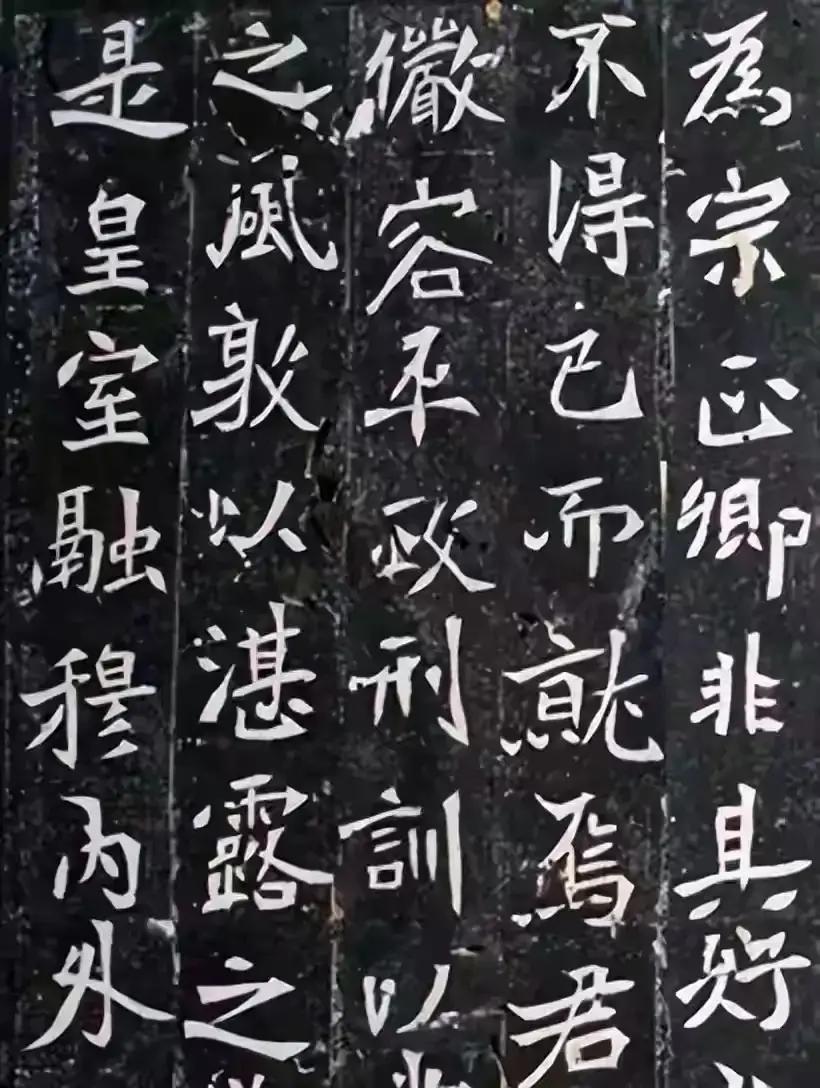 為宗正卿非其好
不得已而就焉君
儼容平政刑訓以
之風敦以湛露之
是皇室融穆內外